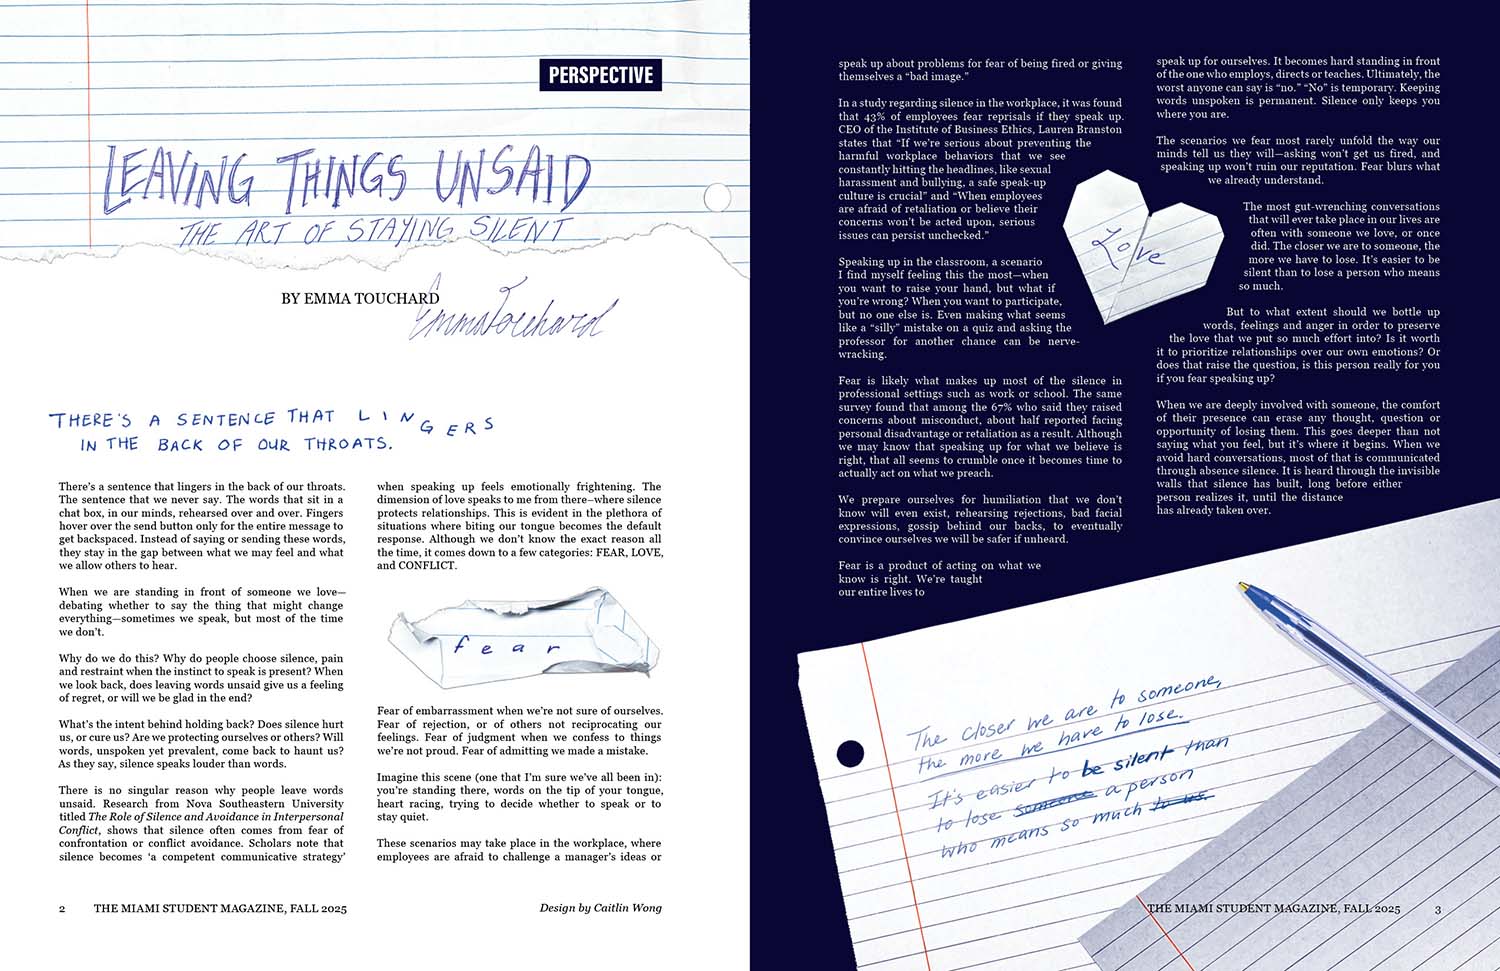 PERSPECTIVE
LEAVING THINGS UNSAID
THE ART OF STAYING SILENT
BY EMMA TOUCHARD
Emma Touchard
THERE'S A SENTENCE THAT LINGERS
IN THE BACK OF OUR THROATS.
There's a sentence that lingers in the back of our throats.
The sentence that we never say. The words that sit in a
chat box, in our minds, rehearsed over and over. Fingers
hover over the send button only for the entire message to
get backspaced. Instead of saying or sending these words,
they stay in the gap between what we may feel and what
we allow others to hear.
When we are standing in front of someone we love—
debating whether to say the thing that might change
everything—sometimes we speak, but most of the time
we don't.
Why do we do this? Why do people choose silence, pain
and restraint when the instinct to speak is present? When
we look back, does leaving words unsaid give us a feeling
of regret, or will we be glad in the end?
What's the intent behind holding back? Does silence hurt
us, or cure us? Are we protecting ourselves or others? Will
words, unspoken yet prevalent, come back to haunt us?
As they say, silence speaks louder than words.
There is no singular reason why people leave words
unsaid. Research from Nova Southeastern University
titled The Role of Silence and Avoidance in Interpersonal
Conflict, shows that silence often comes from fear of
confrontation or conflict avoidance. Scholars note that
silence becomes ‘a competent communicative strategy’
when speaking up feels emotionally frightening. The
dimension of love speaks to me from there–where silence
protects relationships. This is evident in the plethora of
situations where biting our tongue becomes the default
response. Although we don't know the exact reason all
the time, it comes down to a few categories: FEAR, LOVE,
and CONFLICT.
fear
Fear of embarrassment when we're not sure of ourselves.
Fear of rejection, or of others not reciprocating our
feelings. Fear of judgment when we confess to things
we're not proud. Fear of admitting we made a mistake.
Imagine this scene (one that I'm sure we've all been in):
you're standing there, words on the tip of your tongue,
heart racing, trying to decide whether to speak or to
stay quiet.
These scenarios may take place in the workplace, where
employees are afraid to challenge a manager's ideas or
2 THE MIAMI STUDENT MAGAZINE, FALL 2025
Design by Caitlin Wong
speak up about problems for fear of being fired or giving
themselves a “bad image.”
In a study regarding silence in the workplace, it was found
that 43% of employees fear reprisals if they speak up.
CEO of the Institute of Business Ethics, Lauren Branston
states that “If we're serious about preventing the
harmful workplace behaviors that we see
constantly hitting the headlines, like sexual
harassment and bullying, a safe speak-up
culture is crucial” and “When employees
are afraid of retaliation or believe their
concerns won't be acted upon, serious
issues can persist unchecked.”
Speaking up in the classroom, a scenario
I find myself feeling this the most—when
you want to raise your hand, but what if
you're wrong? When you want to participate,
but no one else is. Even making what seems
like a “silly” mistake on a quiz and asking the
professor for another chance can be nerve-
wracking.
Fear is likely what makes up most of the silence in
professional settings such as work or school. The same
survey found that among the 67% who said they raised
concerns about misconduct, about half reported facing
personal disadvantage or retaliation as a result. Although
we may know that speaking up for what we believe is
right, that all seems to crumble once it becomes time to
actually act on what we preach.
We prepare ourselves for humiliation that we don't
know will even exist, rehearsing rejections, bad facial
expressions, gossip behind our backs, to eventually
convince ourselves we will be safer if unheard.
Fear is a product of acting on what we
know is right. We're taught
our entire lives to
speak up for ourselves. It becomes hard standing in front
of the one who employs, directs or teaches. Ultimately, the
worst anyone can say is “no.” “No” is temporary. Keeping
words unspoken is permanent. Silence only keeps you
where you are.
The scenarios we fear most rarely unfold the way our
minds tell us they will—asking won't get us fired, and
speaking up won't ruin our reputation. Fear blurs what
we already understand.
Love
The most gut-wrenching conversations
that will ever take place in our lives are
often with someone we love, or once
did. The closer we are to someone, the
more we have to lose. It's easier to be
silent than to lose a person who means
so much.
But to what extent should we bottle up
words, feelings and anger in order to preserve
the love that we put so much effort into? Is it worth
it to prioritize relationships over our own emotions? Or
does that raise the question, is this person really for you
if you fear speaking up?
When we are deeply involved with someone, the comfort
of their presence can erase any thought, question or
opportunity of losing them. This goes deeper than not
saying what you feel, but it's where it begins. When we
avoid hard conversations, most of that is communicated
through absence silence. It is heard through the invisible
walls that silence has built, long before either
person realizes it, until the distance
has already taken over.
The closer we are to someone,
the more we have to lose.
It's easier to be silent than
to lose someone a person
who means so much to us.
THE MIAMI STUDENT MAGAZINE, FALL 2025 3